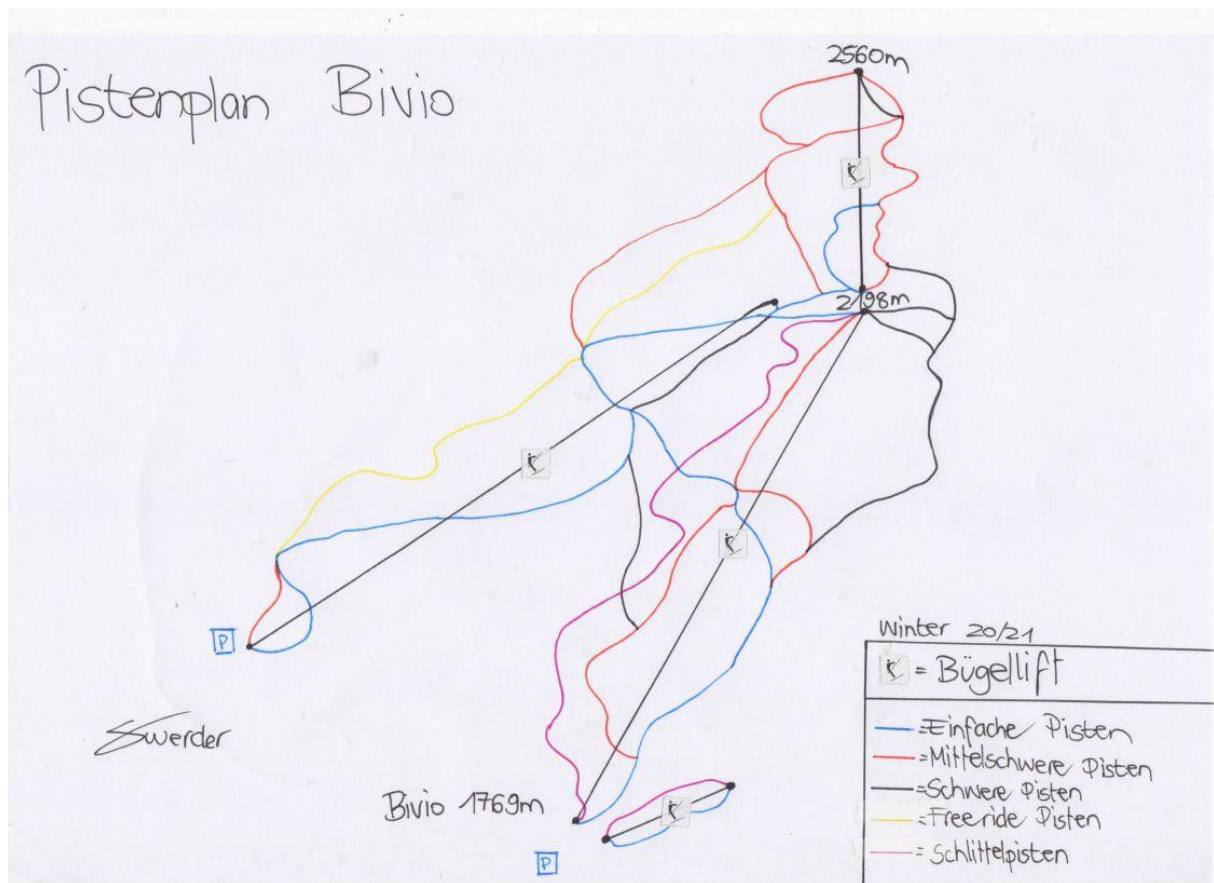 Pistenplan Bivio
2560m
2198m
P
Swerder
Bivio 1769m
P
Winter 20/21
= Bügellift
=Einfache Pisten
=Mittelschwere Pisten
=Schwere Pisten
=Freeride Pisten
= Schlittelpisten